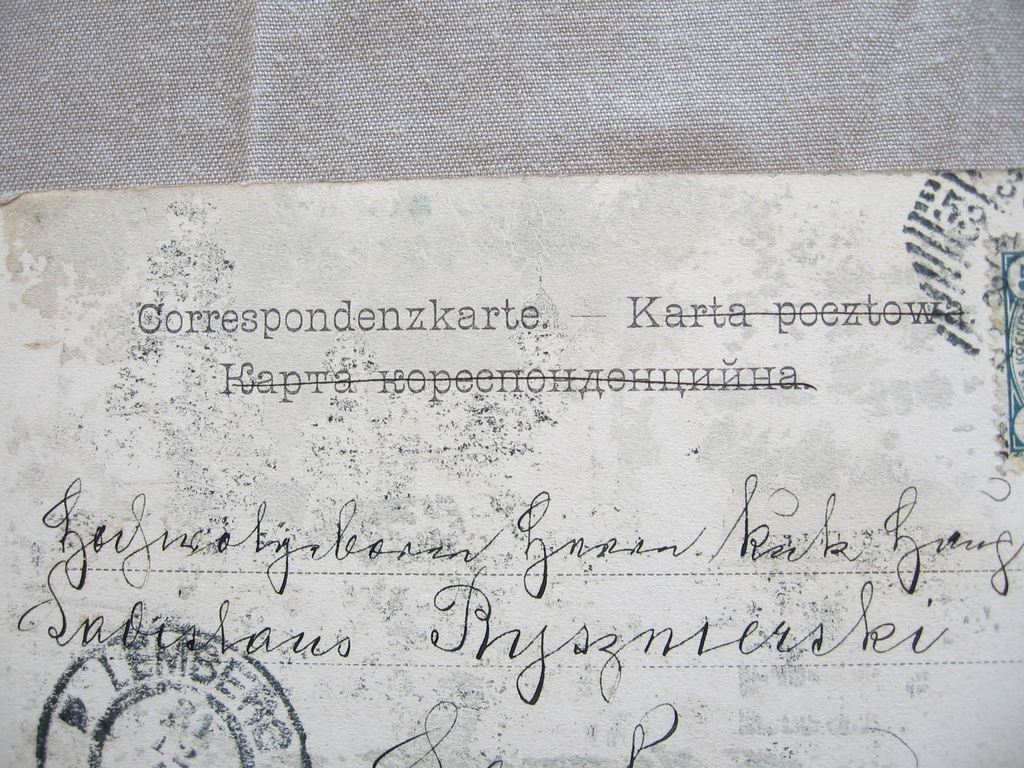 Correspondenzkarte. — Karta pocztowa.
Карта кореспонденцийна.
Hochwolgeboren Herrn kuk
Ladislaus Rysznierski
LEMBERG